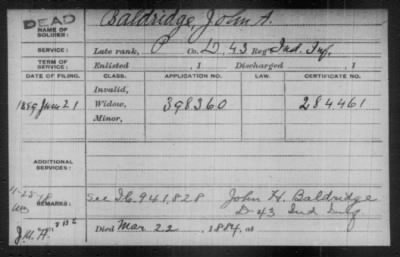 DEAD
NAME OF SOLDIER: Baldridge, John A.
SERVICE: Late rank, P Co. D, 43 Reg't Ind. Inf.
TERM OF SERVICE: Enlisted , 1 Discharged , 1
DATE OF FILING. CLASS. APPLICATION NO. LAW. CERTIFICATE NO.
Invalid,
1889 Jun 21 Widow, 398360 284461
Minor,
ADDITIONAL SERVICES:
11-25-18
REMARKS: See I.C. 941,828 John H. Baldridge
D-43 Ind Inf
Died Mar 22, 1884, at